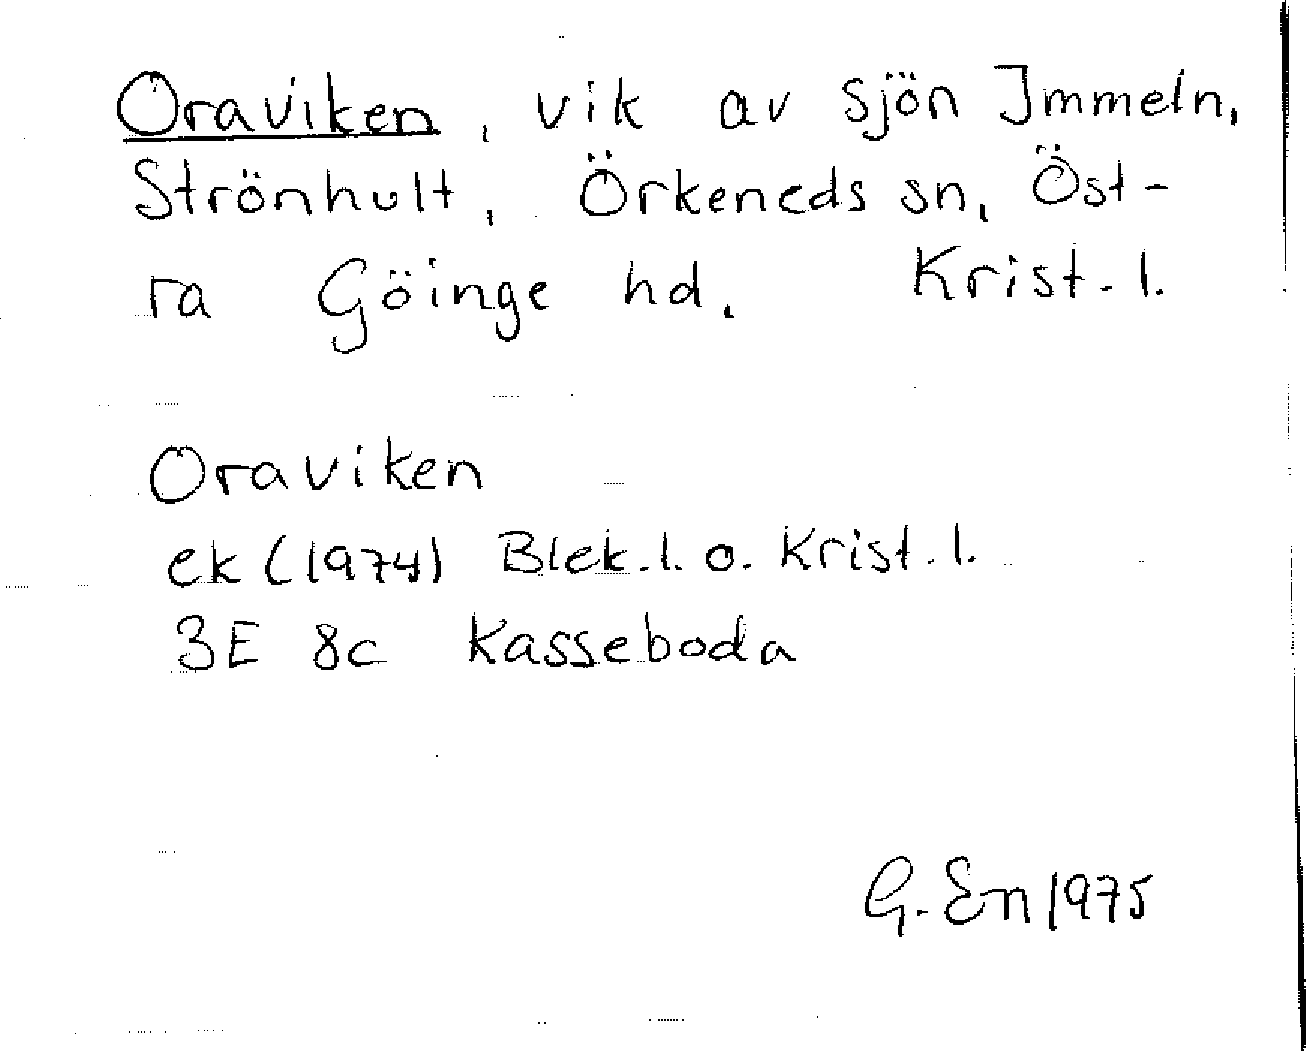 Öraviken, vik av sjön Immeln,
Strönhult, Örkeneds sn, Öst-
ra Göinge hd. Krist. l.
Öraviken
ek (1974) Blek. l. o. Krist. l.
3E 8c Kasseboda
G. En 1975